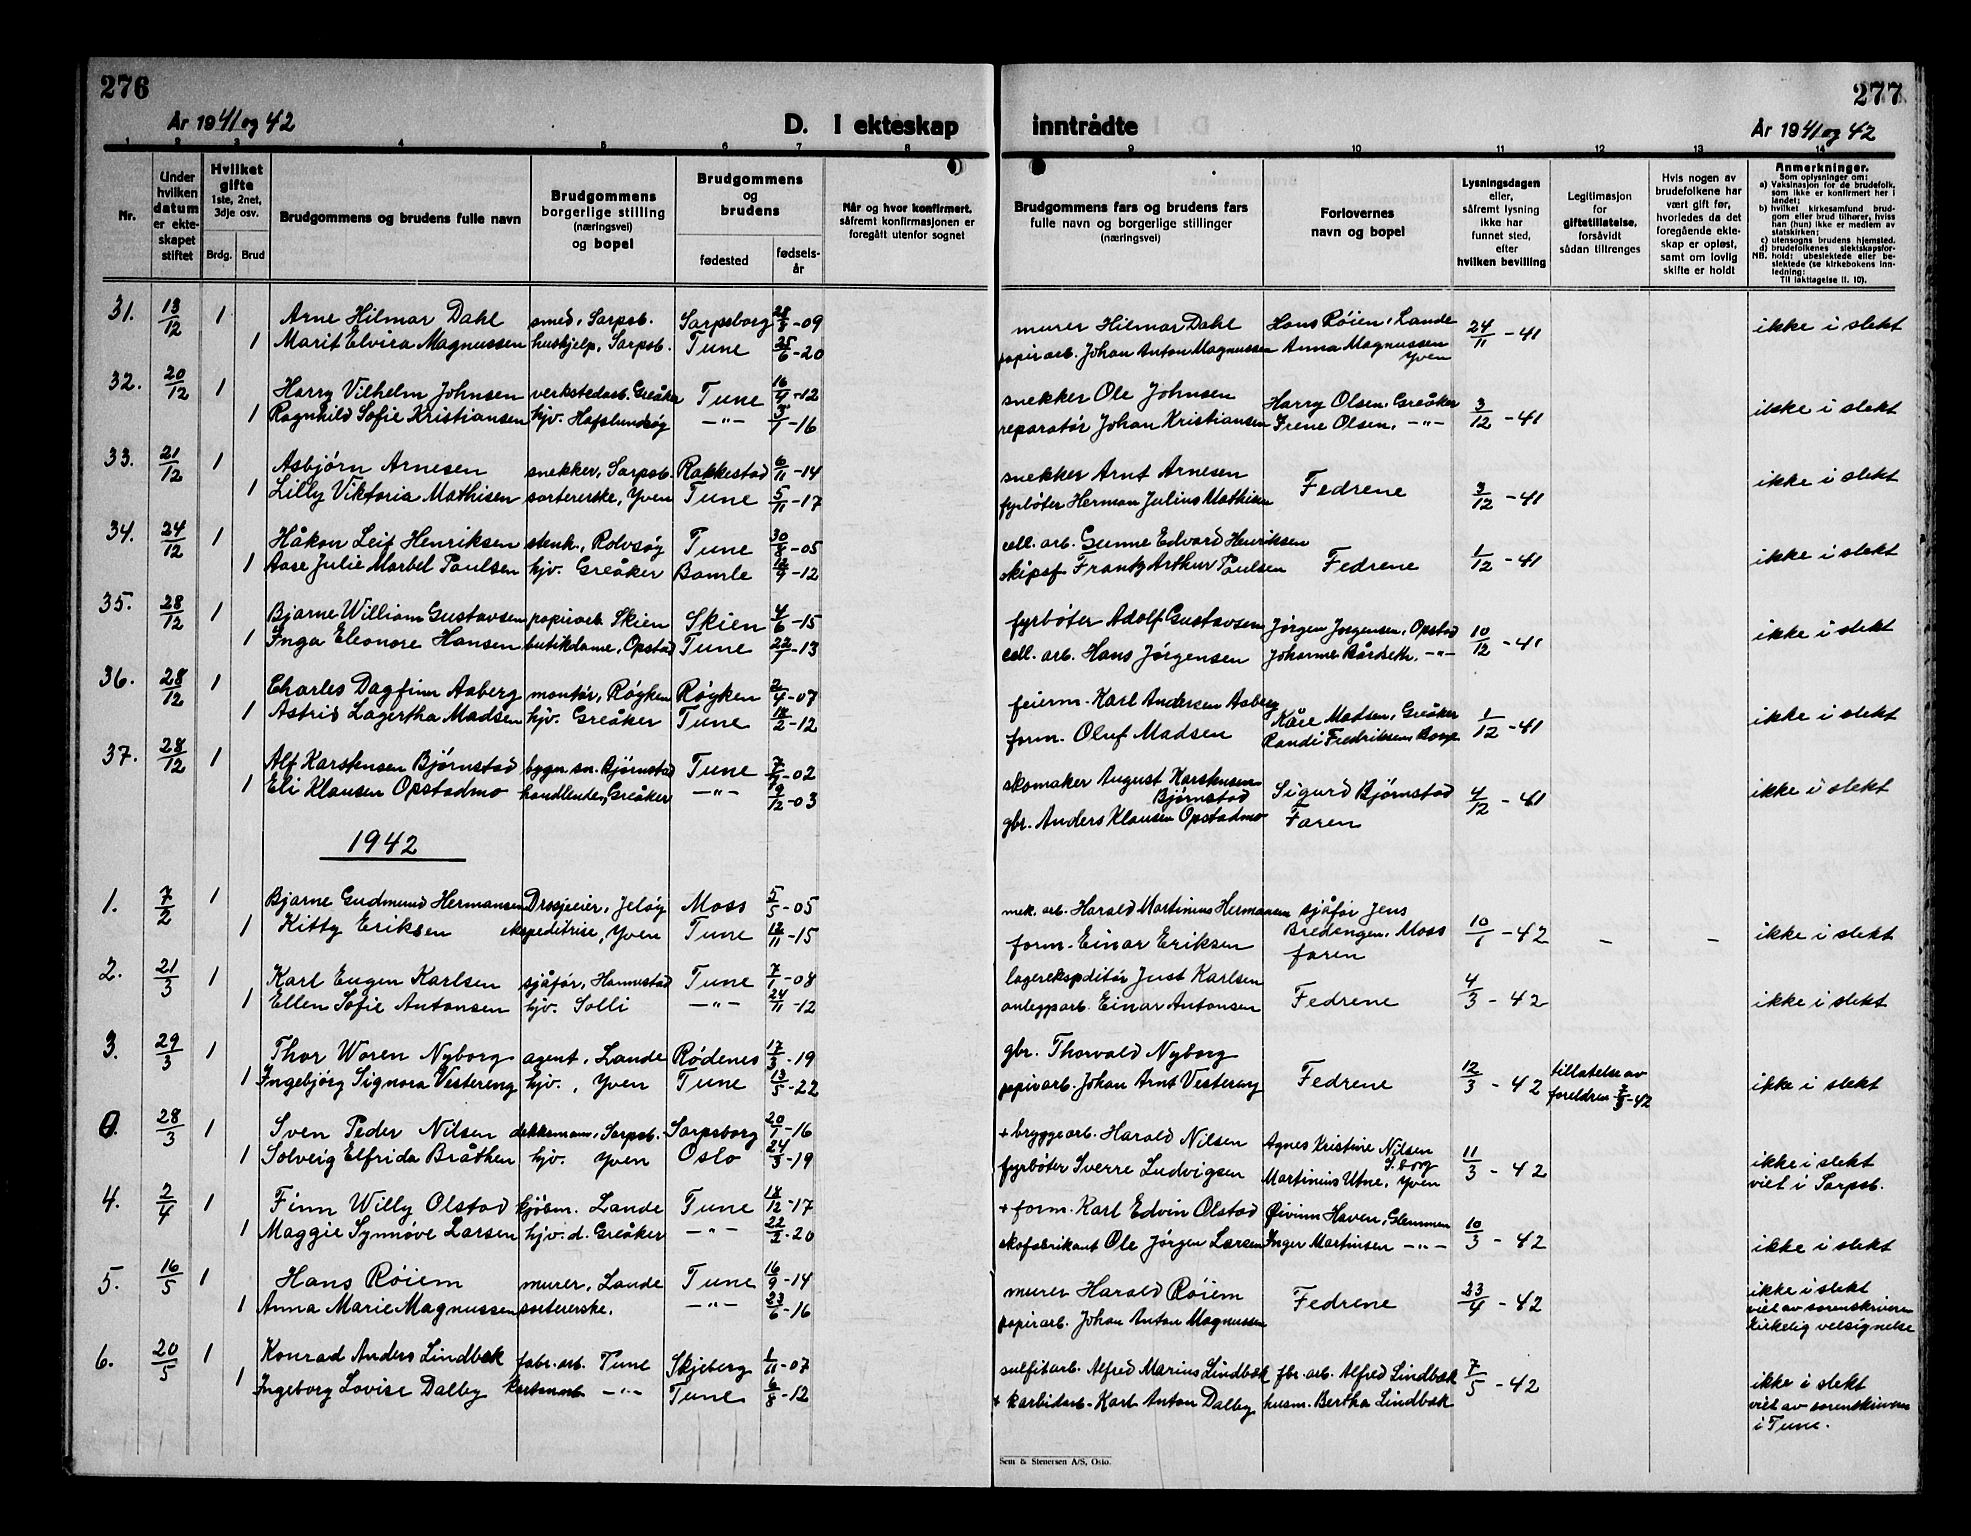 276
År 1941 og 42
D. I ekteskap
inntrådte
277
År 1941 og 42
1 2 3 4 5 6 7 8 9 10 11 12 13 14
Nr.
Under hvilken datum er ekteskapet stiftet
Hvilket gifte 1ste, 2net, 3dje osv.
Brdg. Brud
Brudgommens og brudens fulle navn
Brudgommens borgerlige stilling (næringsvei) og bopel
Brudgommens og brudens
fødested
fødselsår
Når og hvor konfirmert, såfremt konfirmasjonen er foregått utenfor sognet
Brudgommens fars og brudens fars fulle navn og borgerlige stillinger (næringsvei)
Forlovernes navn og bopel
Lysningsdagen eller, såfremt lysning ikke har funnet sted, efter hvilken bevilling
Legitimasjon for giftetillatelse, forsåvidt sådan tiltrenges
Hvis nogen av brudefolkene har vært gift før, hvorledes da det foregående ekteskap er opløst, samt om lovlig skifte er holdt
Anmerkninger.
Som oplysninger om:
a) Vaksinasjon for de brudefolk, som ikke er konfirmert her i landet;
b) hvilket kirkesamfund brudgom eller brud tilhører, hviss han (hun) ikke er medlem av statskirken;
c) utensogns brudens hjemsted.
d) brudefolkenes slektskapsforhold: ubeslektede eller beslektede (se kirkebokens innledning:
NB. Til iakttagelse II. 10).
31. 13/12 1 Arne Hilmar Dahl smed, Sarpsb. Sarpsborg -09 murer Hilmar Dahl Hans Røien, Lande 24/11 - 41 ikke i slekt
1 Marit Elvira Magnussen hushjelp, Sarpsb. Tune 25/6 -20 papirarb. Johan Anton Magnussen Anna Magnussen Yven
32. 20/12 1 Harry Vilhelm Johnsen verkstedarb. Greåker Tune 16/9 -12 snekker Ole Johnsen Harry Olsen, Greåker 3/12 - 41 ikke i slekt
1 Ragnhild Sofie Kristiansen hjv. Hafslundsøy —"— 3/1 -16 reparatør Johan Kristiansen Irene Olsen, —"—
33. 21/12 1 Asbjørn Arnesen snekker, Sarpsb. Rakkestad 6/11 -14 snekker Arnt Arnesen Fedrene 3/12 - 41 ikke i slekt
1 Lilly Viktoria Mathisen sortererske, Yven Tune 5/11 -17 fyrbøter Herman Julius Mathisen
34. 24/12 1 Håkon Leif Henriksen stenh., Rolvsøy Tune 30/8 -05 cell. arb. Gunne Edvard Henriksen Fedrene 1/12 - 41 ikke i slekt
1 Aase Julie Marbel Paulsen hjv. Greåker Bamle -12 skipsf. Frantz Arthur Paulsen
35. 28/12 1 Bjarne William Gustavsen papirarb. Skien Skien 4/6 -15 fyrbøter Adolf Gustavsen Jørgen Jørgensen, Opstad 10/12 - 41 ikke i slekt
1 Inga Eleonore Hansen butikdame, Opstad Tune -13 cell. arb. Hans Jørgensen Johanne Bårdseth, —"—
36. 28/12 1 Charles Dagfinn Aaberg montør, Røyken Røyken 2/4 -07 feierm. Karl Andersen Aaberg Kåre Madsen, Greåker 1/12 - 41 ikke i slekt
1 Astrid Lagertha Madsen hjv. Greåker Tune -12 form. Oluf Madsen Randi Fredriksen, Borge
37. 28/12 1 Alf Karstensen Bjørnstad bygn.sn. Bjørnstad Tune -02 skomaker August Karstensen Bjørnstad Sigurd Bjørnstad 4/12 - 41 ikke i slekt
1 Eli Klausen Opstadmo handlende, Greåker —"— 9/12 -03 gbr. Anders Klausen Opstadmo Faren
1942
1. 7/2 1 Bjarne Gudmund Hermansen Drosjeeier, Jeløy Moss 5/5 -05 mek. arb. Harald Martinius Hermansen sjåfør Jens Bredengen, Moss 10/1 - 42 – – ikke i slekt
1 Kitty Eriksen ekspeditrise, Yven Tune 12/11 -15 form. Einar Eriksen faren
2. 21/3 1 Karl Eugen Karlsen sjåfør, Hannestad Tune 7/1 -08 lagerekspeditør Just Karlsen Fedrene 4/3 - 42 ikke i slekt
1 Ellen Sofie Antonsen hjv. Solli —"— 24/11 -12 anleggsarb. Einar Antonsen
3. 29/3 1 Thor Woren Nyborg agent, Lande Rødenes 17/3 -19 gbr. Thorvald Nyborg Fedrene 12/3 - 42 tillatelse av foreldren -42 ikke i slekt
1 Ingebjørg Signora Vestereng hjv., Yven Tune 13/5 -22 papirarb. Johan Arnt Vestereng
0. 28/3 1 Sven Peder Nilsen dekksmann, Sarpsb. Sarpsborg 20/1 -16 + bryggearb. Harald Nilsen Agnes Kristine Nilsen S.borg 11/3 - 42 ikke i slekt
1 Solveig Elfrida Bråthen hjv. Yven Oslo 24/3 -19 fyrbøter Sverre Ludvigsen Martinius Utne, Yven viet i Sarpsb.
4. 2/4 1 Finn Willy Olstad kjøbm. Lande Tune 18/12 -17 + form. Karl Edvin Olstad Øivinn Haven, Glemmen 10/3 - 42 ikke i slekt
1 Maggie Synnøve Larsen hjv. d. Greåker —"— 22/2 -20 skofabrikant Ole Jørgen Larsen Inger Martinsen —"—
5. 16/5 1 Hans Røiem murer, Lande Tune 16/9 -14 murer Harald Røiem Fedrene 23/4 - 42 ikke i slekt
1 Anna Marie Magnussen sortererske. —"— 23/6 -16 papirarb. Johan Anton Magnussen viet av sorenskriveren kirkelig velsignelse
6. 20/5 1 Konrad Anders Lindbæk fabr. arb. Tune Skjeberg 1/11 -07 sulfitarb. Alfred Marius Lindbæk fbr. arb. Alfred Lindbæk 7/5 - 42 ikke i slekt
1 Ingeborg Lovise Dalby —"— Tune 6/8 -12 + karbidarb. Karl Anton Dalby husm. Bertha Lindbæk viet av sorenskriveren i Tune.
Sem & Stenersen A/S, Oslo.